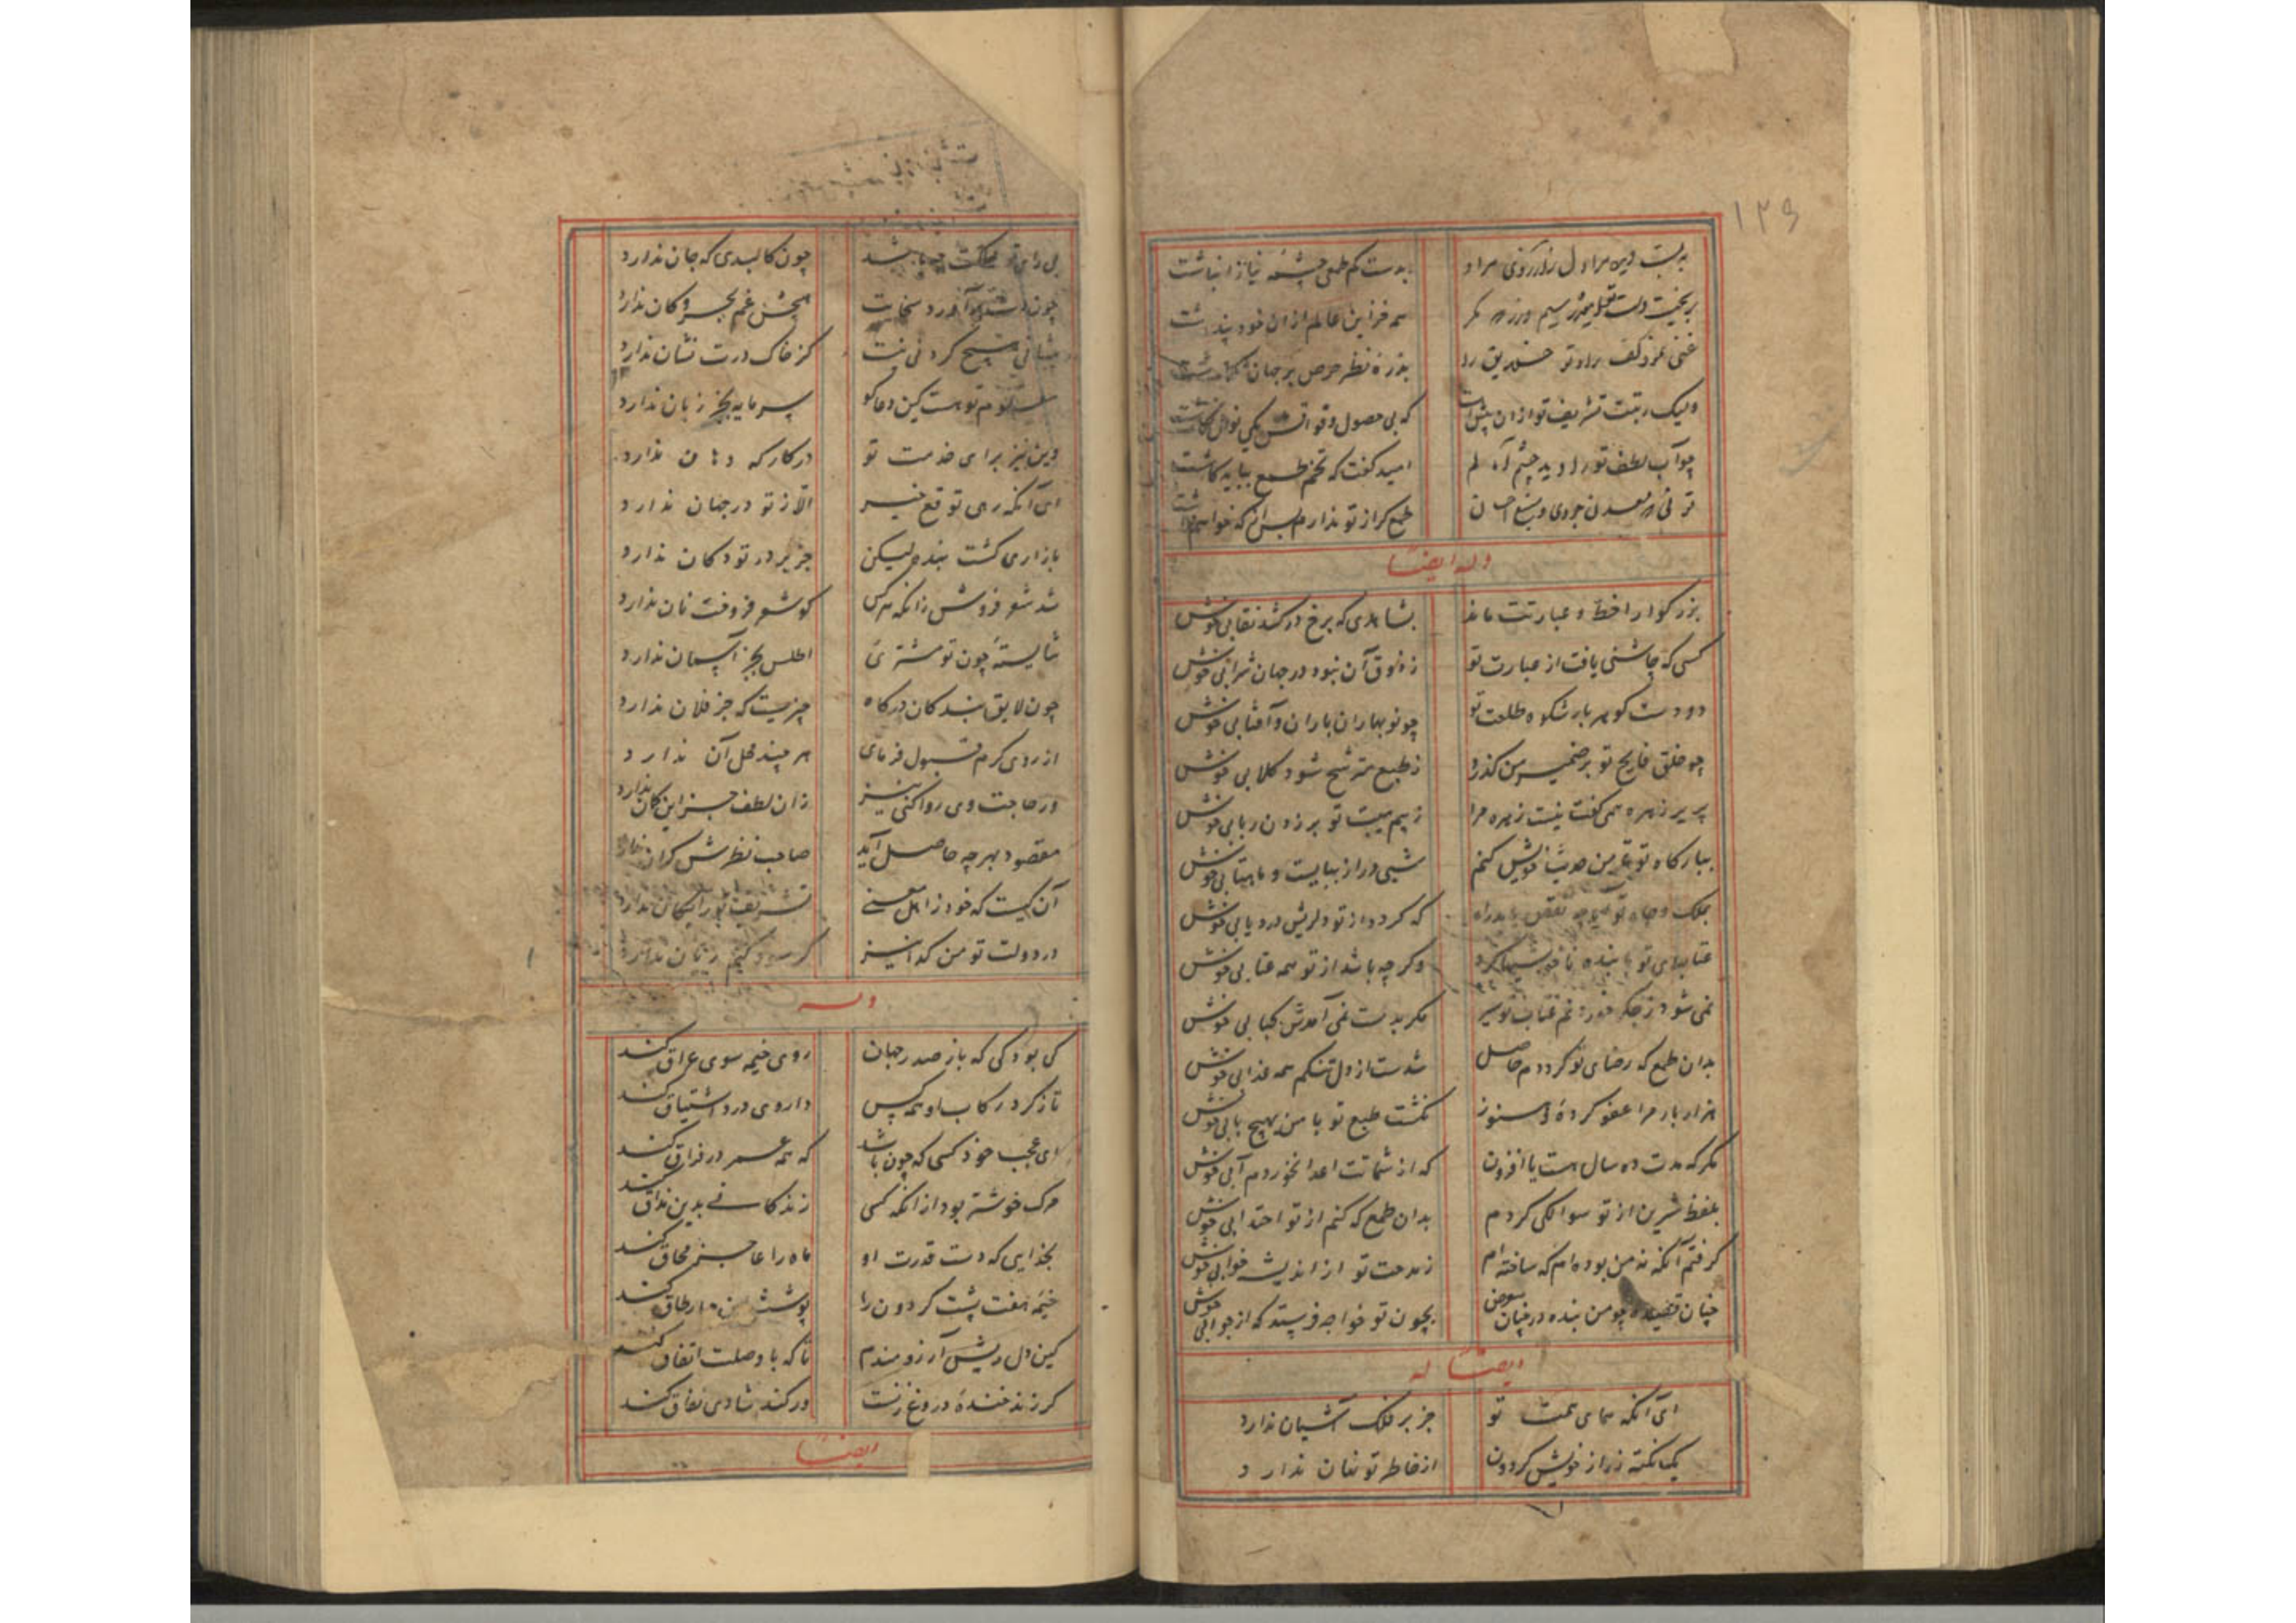 ۱۳۶
بدست کم طمعی چشمه نیاز انباشت
بریخت دست تو
همه خزاین عالم از آن خود پنداشت
بذره نظر حرص بر جهان
ولیک رتبت تشریف تو از آن بیش است
که بی حصول وقوفش یکی
چو آب لطف تو را دید چشم
امید گفت که تخم طمع بباید کاشت
توئی که معدن جودی و منبع احسان
طمع گر از تو ندارم پس از که خواهم داشت
وله ایضا
بزرگوارا خط و عبارتت ماند
بشاهدی که برخ درکشد نقابی خوش
کسی که چاشنی یافت از عبارت تو
ز ذوق آن نبود در جهان شرابی خوش
دو دست گوهر بار شکوه طلعت تو
چو نوبهاران باران و آفتابی خوش
چو خلق فایح تو بر ضمیر من گذرد
ز طبع مترشح شود گلابی خوش
پریر زهره همی گفت نیست زهره مرا
ز بیم هیبت تو بر زدن ربابی خوش
ببارگاه تو گر من حدیث خویش کنم
شبی دراز ببایست و ماهتابی خوش
بملک و جاه تو
که گردد از تو دلریش دردیابی خوش
عتابهای تو با بنده ناخوشیها کرد
وگر چه باشد از تو همه عتابی خوش
نمی شود ز جگر خوردن غم عتاب تو سیر
مگر بدست نمی آمدش کبابی خوش
بدان طمع که رضای تو گرددم حاصل
شدست از دل تنگم همه عذابی خوش
هزار بار مرا عفو کرده و هنوز
نگشت طبع تو با من بهیچ بابی خوش
مگر که مدت ده سال هست یا افزون
که از شماتت اعدا نخوردم آبی خوش
بلفظ شیرین از تو سوالکی کردم
بدان طمع که کنم از تو اجتدابی خوش
گرفتم آنکه نه من بوده ام که ساخته ام
ز مدحت تو از اندیشه خوابی خوش
چنان قصیده چو من بنده در چنان معرض
بچون تو خواجه فرستد که از جوابی خوش
ایضا له
ای آنکه همای همت تو
جز بر فلک آشیان ندارد
یک نکته ز راز خویش گردون
از خاطر تو نهان ندارد
بی رای تو مملکت چه باشد
چون کالبدی که جان ندارد
چون دست تو آورد سخاوت
هیچش غم بحر و کان ندارد
پیشانی هیچ گردنی نیست
کز خاک درت نشان ندارد
هست کین دعاگو
سرمایه بجز زبان ندارد
وین نیز برای خدمت تو
در کار که دهان ندارد
ای آنکه رهی توقع خیر
الا ز تو در جهان ندارد
بازاری گشت بنده لیکن
جز بر در تو دکان ندارد
شد شعر فروش زانکه هر کس
کو شعر فروخت نان ندارد
شایسته چون تو مشتری
اطلس بجز آسمان ندارد
چون لایق بندگان درگاه
چیزیست که جز فلان ندارد
از روی کرم قبول فرمای
هر چند محل آن ندارد
ور حاجت وی روا کنی نیز
زان لطف جز این گمان ندارد
مقصود بهر چه حاصل آید
صاحب نظرش گران ندارد
آن کیست که خود ز اهل معنی
تشریف تو رایگان ندارد
در دولت تو من گدا نیز
گر سود کنم زیان ندارد
وله
کی بود کی که باز صدر جهان
روی خیمه سوی عراق کند
تا ز گرد رکاب او همه کس
داروی درد اشتیاق کند
ای عجب خود کسی که چون باشد
که همه عمر در فراق کند
مرگ خوشتر بود از آنکه کسی
زندگانی بدین مذاق کند
بخدایی که دست قدرت او
ماه را عاجز محاق کند
خیمه هفت پشت گردون را
پوشش
کین دل ریش آرزومندم
تا که با وصلت اتفاق کند
گر زند خنده دروغ زنست
ور کند شادی نفاق کند
ایضا